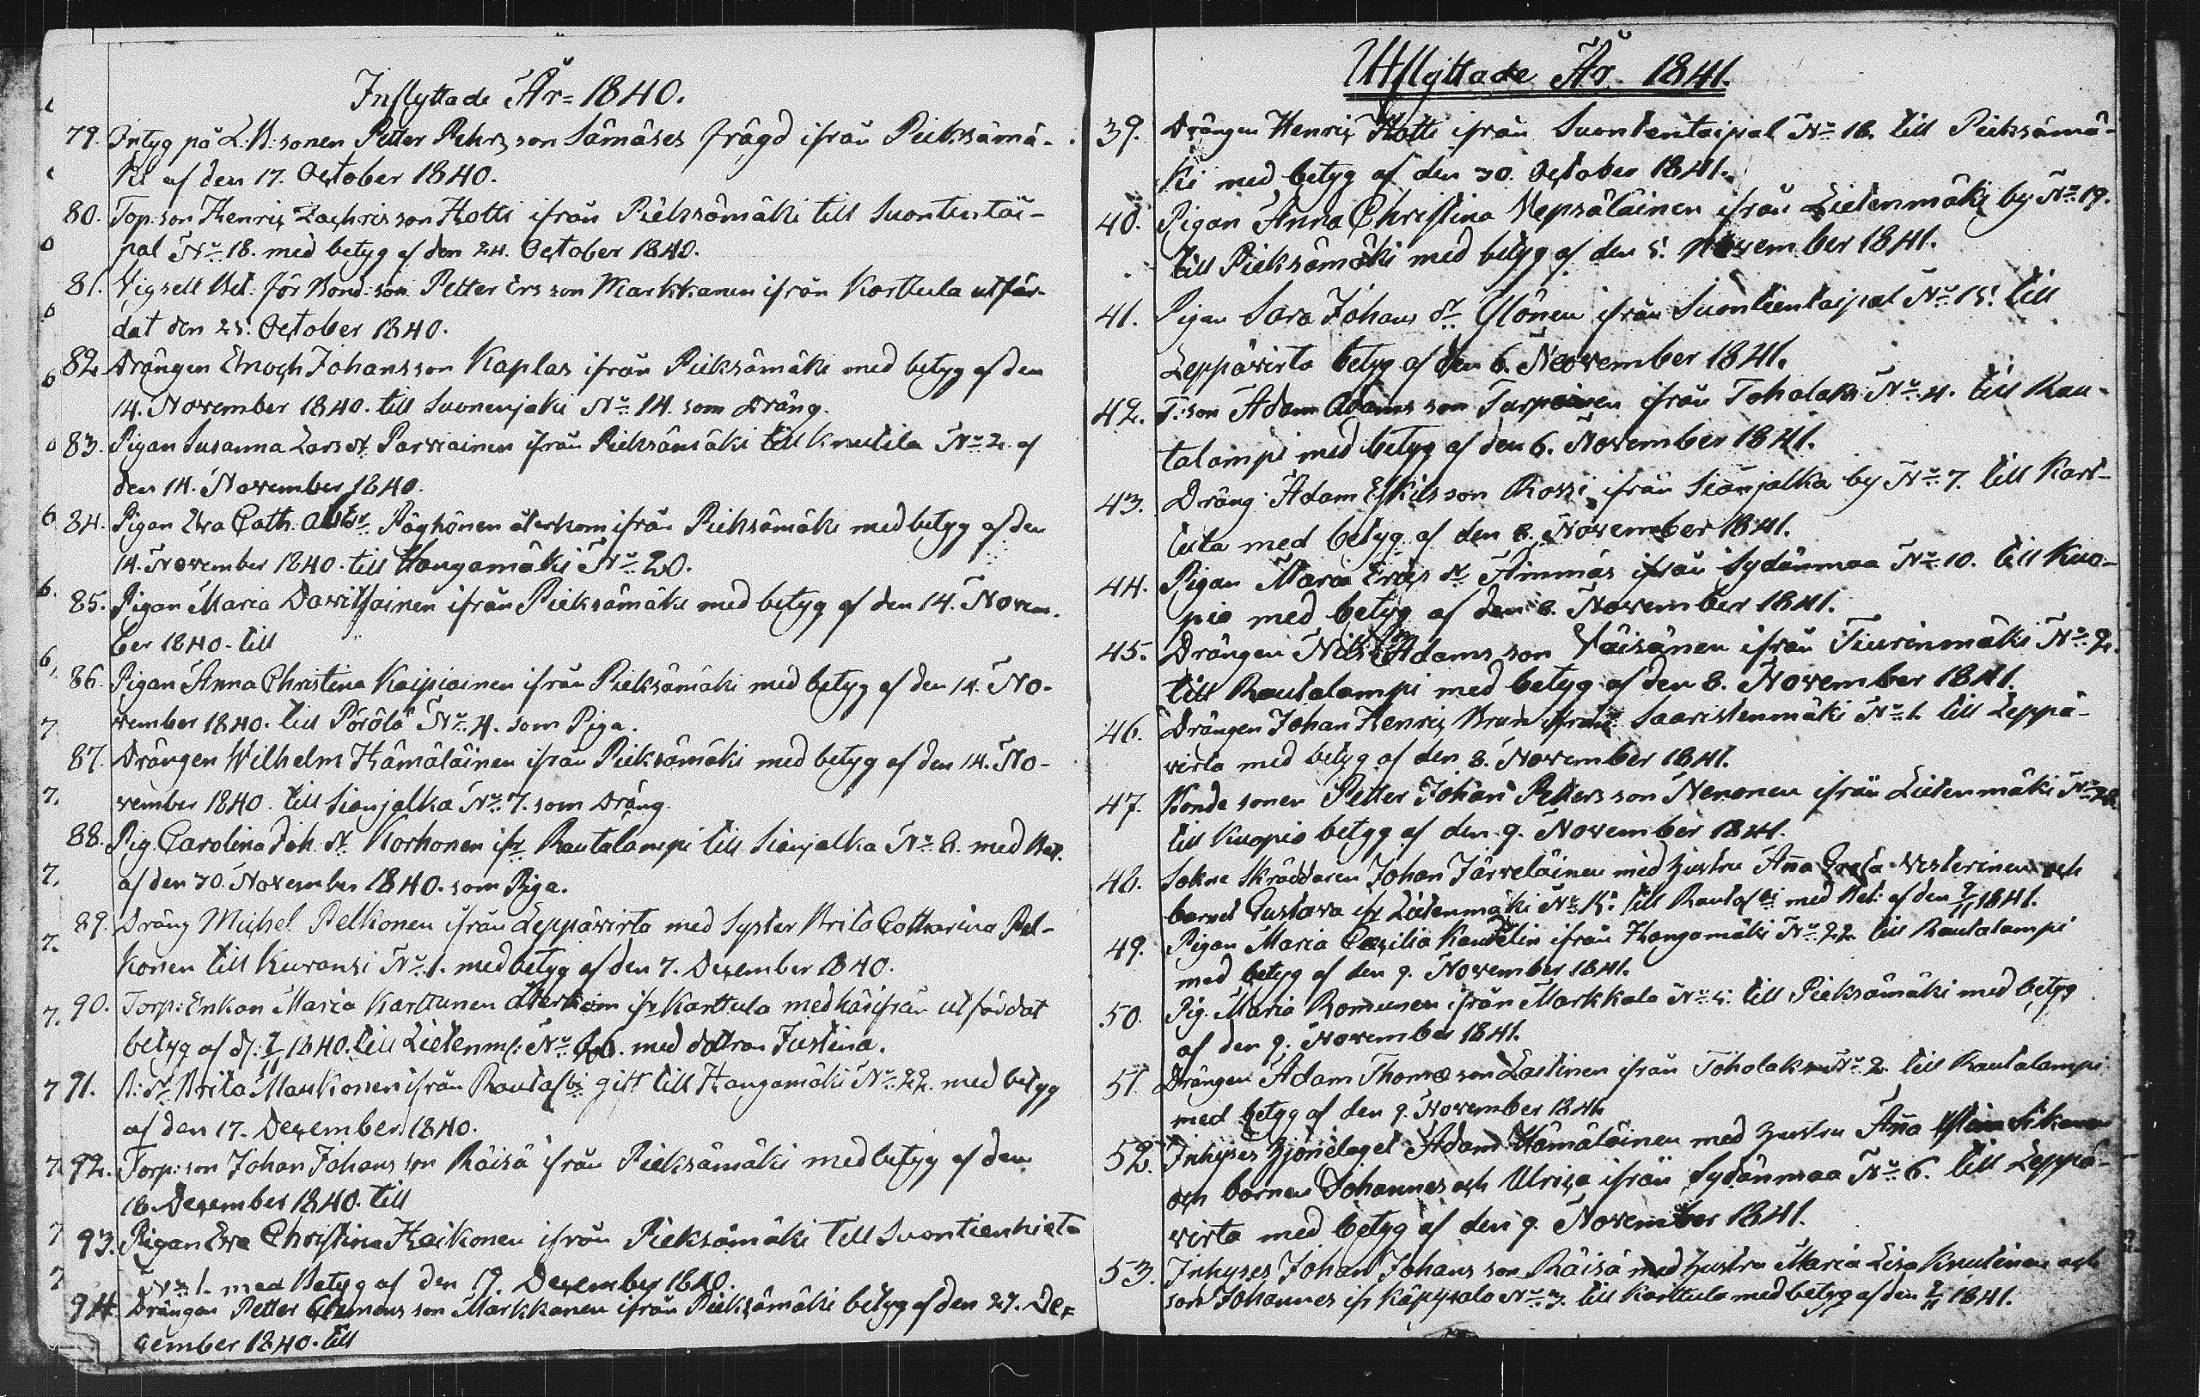 Inflyttade År 1840.
79. Intyg på L:B:sonen Petter Pehrsson Sämäses frägd ifrån Pieksämä-
ki af den 17. October 1840.
80. Top:son Henric Zachrisson Hotti ifrån Pieksämäki till Suontentai-
pal No 18. med betyg af den 24. October 1840.
81. Vigsell Bet: för Bond:son Petter Ersson Markkanen ifrån Karttula utfär-
dat den 25. October 1840.
82. Drängen Enoch Johansson Kaplas ifrån Pieksämäki med betyg af den
14. November 1840. till Suonenjoki No 14. som Dräng.
83. Pigan Susanna Lars dr Parviainen ifrån Pieksämäki till Knutila No 2. af
den 14. November 1840.
84. Pigan Eva Cath. Pöyhönen återkom ifrån Pieksämäki med betyg af den
14. November 1840. till Hangamäki No 20.
85. Pigan Maria Davitsainen ifrån Pieksämäki med betyg af den 14. Novem-
ber 1840. till
86. Pigan Anna Christina Kaipiainen ifrån Pieksämäki med betyg af den 14. No-
vember 1840. till Pörölä No 4. som Piga.
87. Drängen Wilhelm Hämäläinen ifrån Pieksämäki med betyg af den 14. No-
vember 1840. till Sianjalka No 7. som Dräng.
88. Pig. Carolina Joh. dr Korhonen ifr Rautalampi till Sianjalka No 8. med Bet.
af den 30. November 1840. som Piga.
89. Dräng Michel Pelkonen ifrån Leppävirta med Syster Brita Catharina Pel-
konen till Kuvansi No 1. med betyg af den 7. December 1840.
90. Torp: Enkan Maria Karttunen återkom ifr Karttula med härifrån utfärdat
betyg af d: 1840. till Lietenm: No med dottran Justina.
91. B: dr Brita Maukonen ifrån Rautalpi gift till Hangamäki No 22. med betyg
af den 17. December 1840.
92. Torp:son Johan Johansson Räisä ifrån Pieksämäki med betyg af den
18. December 1840. till
93. Pigan Eva Christina Haikonen ifrån Pieksämäki till Suontienhieta
No 1. med Betyg af den 19. December 1840.
94. Drängen Petter Clemensson Markkanen ifrån Pieksämäki betyg af den 27. De-
cember 1840. till
Utflyttade År 1841.
39. Drängen Henric Hotti ifrån Suontentaipal No 18. till Pieksämä-
ki med betyg af den 30. October 1841.
40. Pigan Anna Christina Vepsäläinen ifrån Lietenmäki by No 19.
till Pieksämäki med betyg af den 5. November 1841.
41. Pigan Sara Johans dr Ylönen ifrån Suontientaipal No 15. till
Leppävirta betyg af den 6. November 1841.
42. T:son Adam Adamsson Turpainen ifrån Toholaks No 4. till Rau-
talampi med betyg af den 6. November 1841.
43. Dräng Adam Eskilsson Rossi ifrån Sianjalka by No 7. till Kart-
tula med betyg af den 8. November 1841.
44. Pigan Maria Erics dr Himmäs ifrån Sydänmaa No 10. till Kuo-
pio med betyg af den 8. November 1841.
45. Drängen Nils Adamsson Väisänen ifrån Tiurinmäki No 2.
till Rautalampi med betyg af den 8. November 1841.
46. Drängen Johan Henric Brun ifrån Saaristenmäki No 1. till Leppä-
virta med betyg af den 8. November 1841.
47. Bonde sonen Petter Johan Pettersson Nenonen ifrån Lietenmäki No
till Kuopio betyg af den 9. November 1841.
48. Sokne Skräddaren Johan Järveläinen med hustru Aña Greta Vesterinen och
barnet Gustava ifr Lietenmäki No 15. till Rautalpi med Bet: af den 9/11 1841.
49. Pigan Maria Cæcilia Kandelin ifrån Hangamäki No 22 till Rautalampi
med betyg af den 9. November 1841.
50. Pig. Maria Romunen ifrån Markkala No 5. till Pieksämäki med betyg
af den 9. November 1841.
51. Drängen Adam Thomæson Laitinen ifrån Toholaks No 2. till Rautalampi
med betyg af den 9. November 1841
52. Inhyses Hjonelaget Adam Hämäläinen med hustru Aña Sikanen
och barnen Johannes och Ulrica ifrån Sydänmaa No 6. till Leppä-
virta med betyg af den 9. November 1841.
53. Inhyses Johan Johansson Räisä med hustru Maria Lisa Knutinen och
son Johannes ifr Käpysalo No 3. till Karttula med betyg af den 9/11 1841.